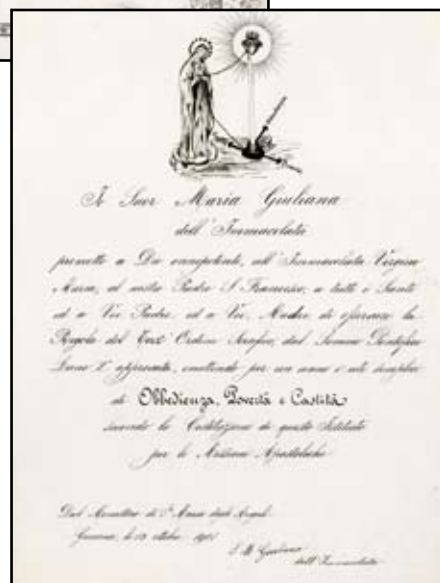 Io Suor Maria Giuliana
dell'Immacolata
prometto a Dio onnipotente, all'Immacolata Vergine
Maria, al nostro Padre S. Francesco, a tutti i Santi
ed a Voi Padre, ed a Voi, Madre, di osservare la
Regola del Terz'Ordine Serafico, dal Sommo Pontefice
Leone X approvata, emettendo per un anno i voti semplici
di Obbedienza, Povertà e Castità
secondo le Costituzioni di questo Istituto
per le Missioni Apostoliche
Dal Monastero di S. Maria degli Angeli
dell'Immacolata